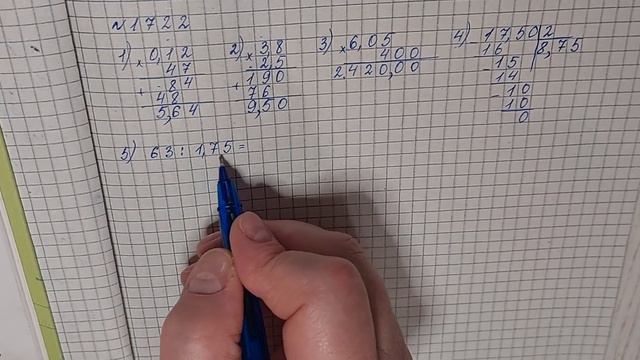 N1722
1) 0,12
× 47
84
+ 48
5,64
2) 38
× 2,5
190
+ 76
9,50
3) 6,05
× 400
2.420,00
4) 17,50 2
- 16 8,75
- 15
14
- 10
10
0
5) 63 : 1,75 =